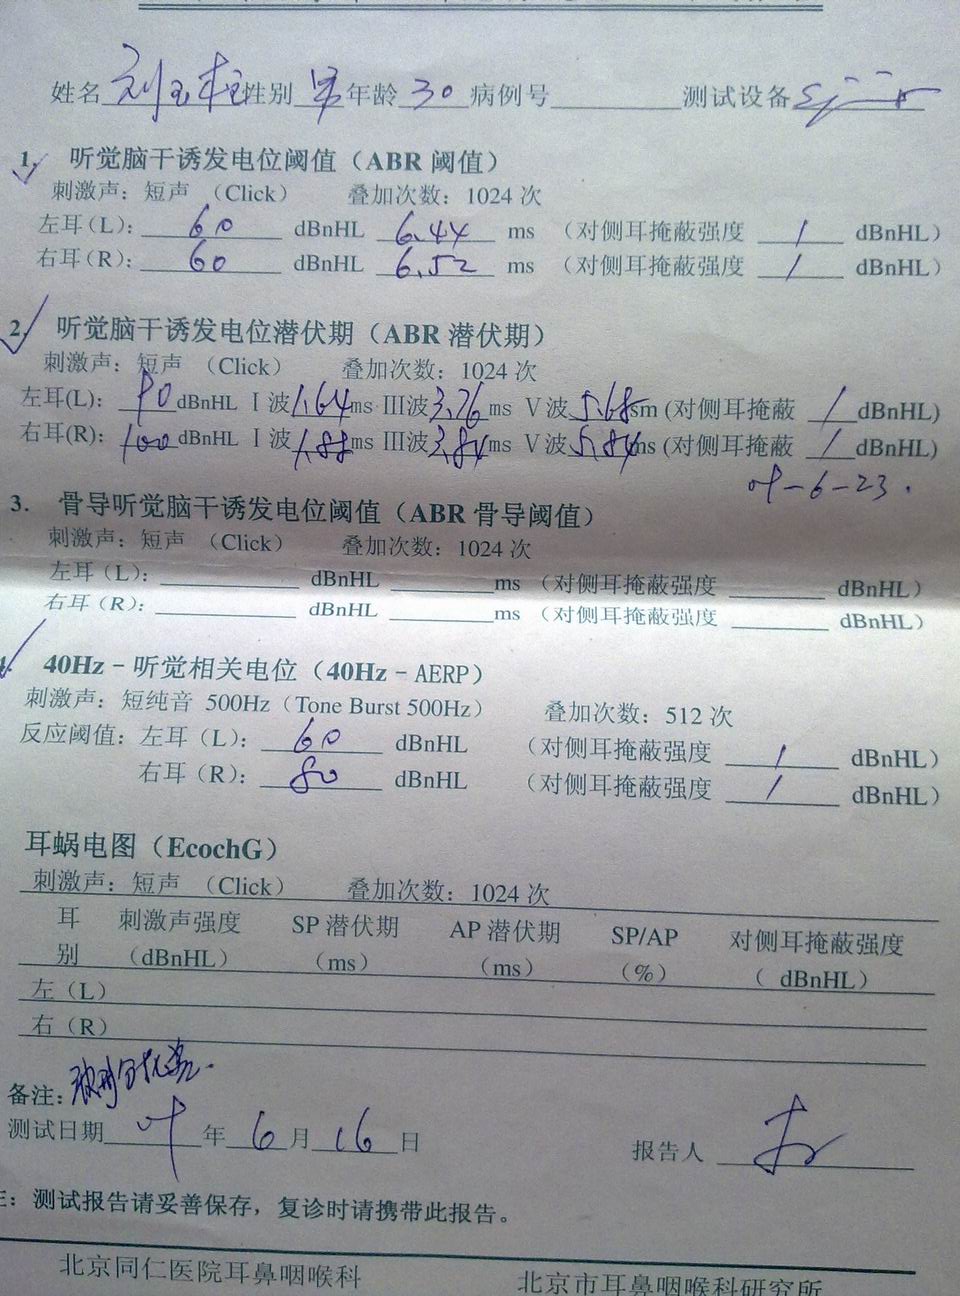 姓名 刘玉柱 性别 男 年龄 30 病例号 测试设备
1. 听觉脑干诱发电位阈值（ABR 阈值）
刺激声：短声 （Click） 叠加次数：1024 次
左耳（L）： 60 dBnHL 6.44 ms （对侧耳掩蔽强度 / dBnHL）
右耳（R）： 60 dBnHL 6.52 ms （对侧耳掩蔽强度 / dBnHL）
2. 听觉脑干诱发电位潜伏期（ABR 潜伏期）
刺激声：短声 （Click） 叠加次数：1024 次
左耳(L)： 90 dBnHL I 波 1.64 ms III波 3.76 ms V 波 5.68 sm (对侧耳掩蔽 / dBnHL)
右耳(R)： 100 dBnHL I 波 1.88 ms III波 3.84 ms V 波 5.84 ms (对侧耳掩蔽 / dBnHL)
-6-23.
3. 骨导听觉脑干诱发电位阈值（ABR 骨导阈值）
刺激声：短声 （Click） 叠加次数：1024 次
左耳（L）： dBnHL ms （对侧耳掩蔽强度 dBnHL）
右耳（R）： dBnHL ms （对侧耳掩蔽强度 dBnHL）
4. 40Hz－听觉相关电位（40Hz－AERP）
刺激声：短纯音 500Hz（Tone Burst 500Hz） 叠加次数：512 次
反应阈值：左耳（L）： 60 dBnHL （对侧耳掩蔽强度 / dBnHL）
右耳（R）： 80 dBnHL （对侧耳掩蔽强度 / dBnHL）
耳蜗电图（EcochG）
刺激声：短声 （Click） 叠加次数：1024 次
耳别 刺激声强度（dBnHL） SP 潜伏期（ms） AP 潜伏期（ms） SP/AP（%） 对侧耳掩蔽强度（ dBnHL）
左（L）
右（R）
备注：
测试日期 年 6 月 16 日 报告人
注：测试报告请妥善保存，复诊时请携带此报告。
北京同仁医院耳鼻咽喉科 北京市耳鼻咽喉科研究所